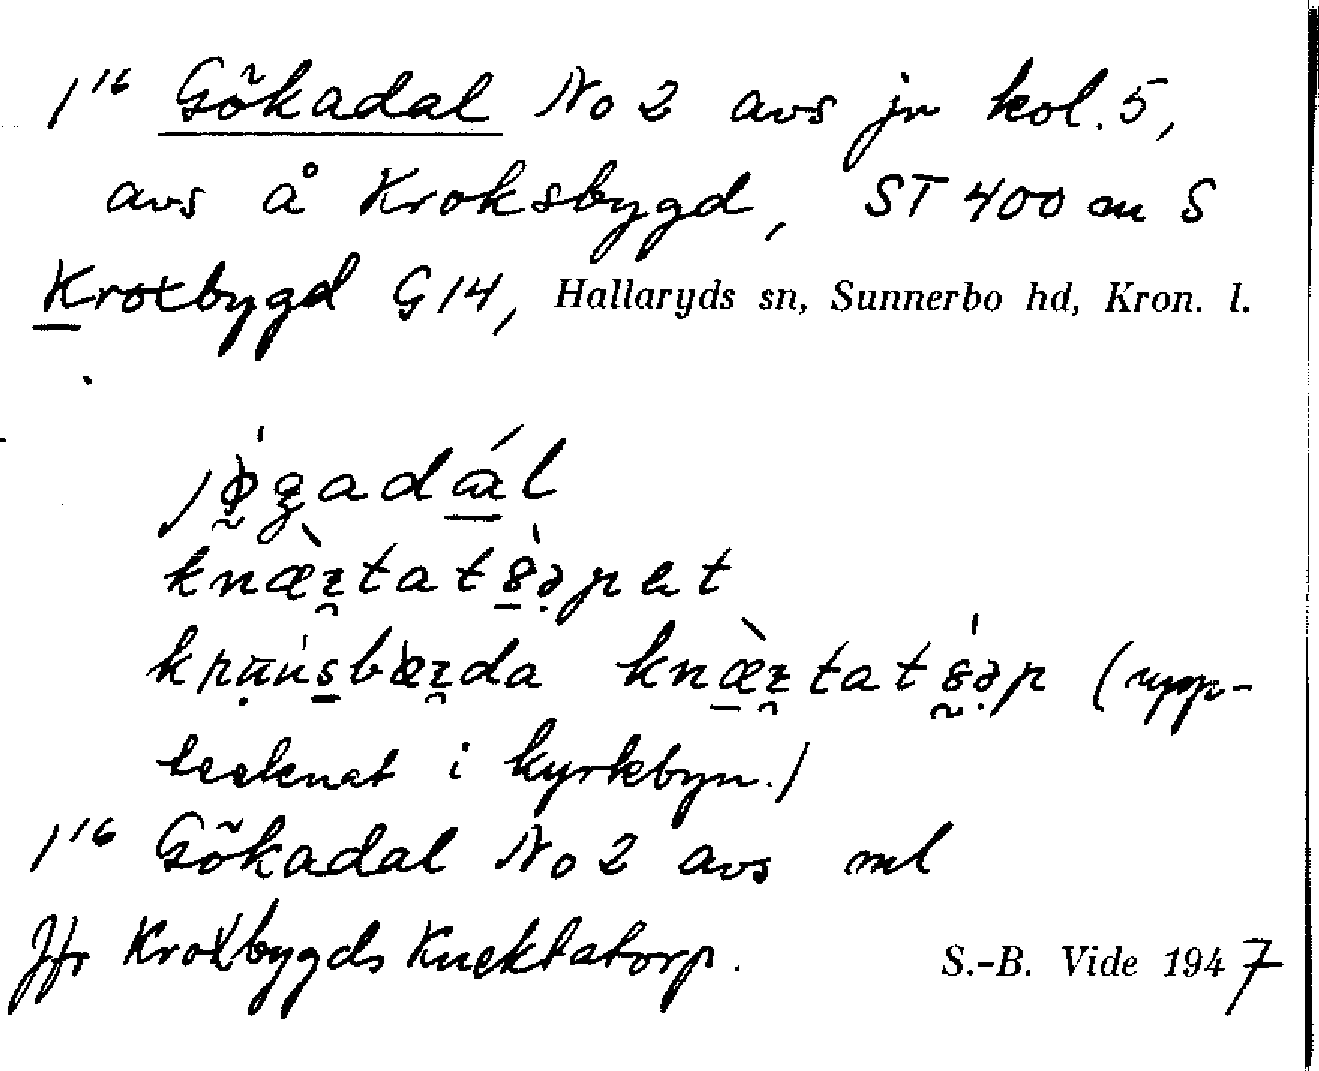 1/16 Gökadal No 2 avs jr kol. 5,
avs å Kroksbygd, ST 400 m S
Kroxbygd G14, Hallaryds sn, Sunnerbo hd, Kron. l.
knæ̀ztat
knæ̀ztat (upp-
tecknat i kyrkbyn.)
1/16 Gökadal No 2 avs ml
Jfr Kroxbygds Knektatorp.
S.-B. Vide 1947